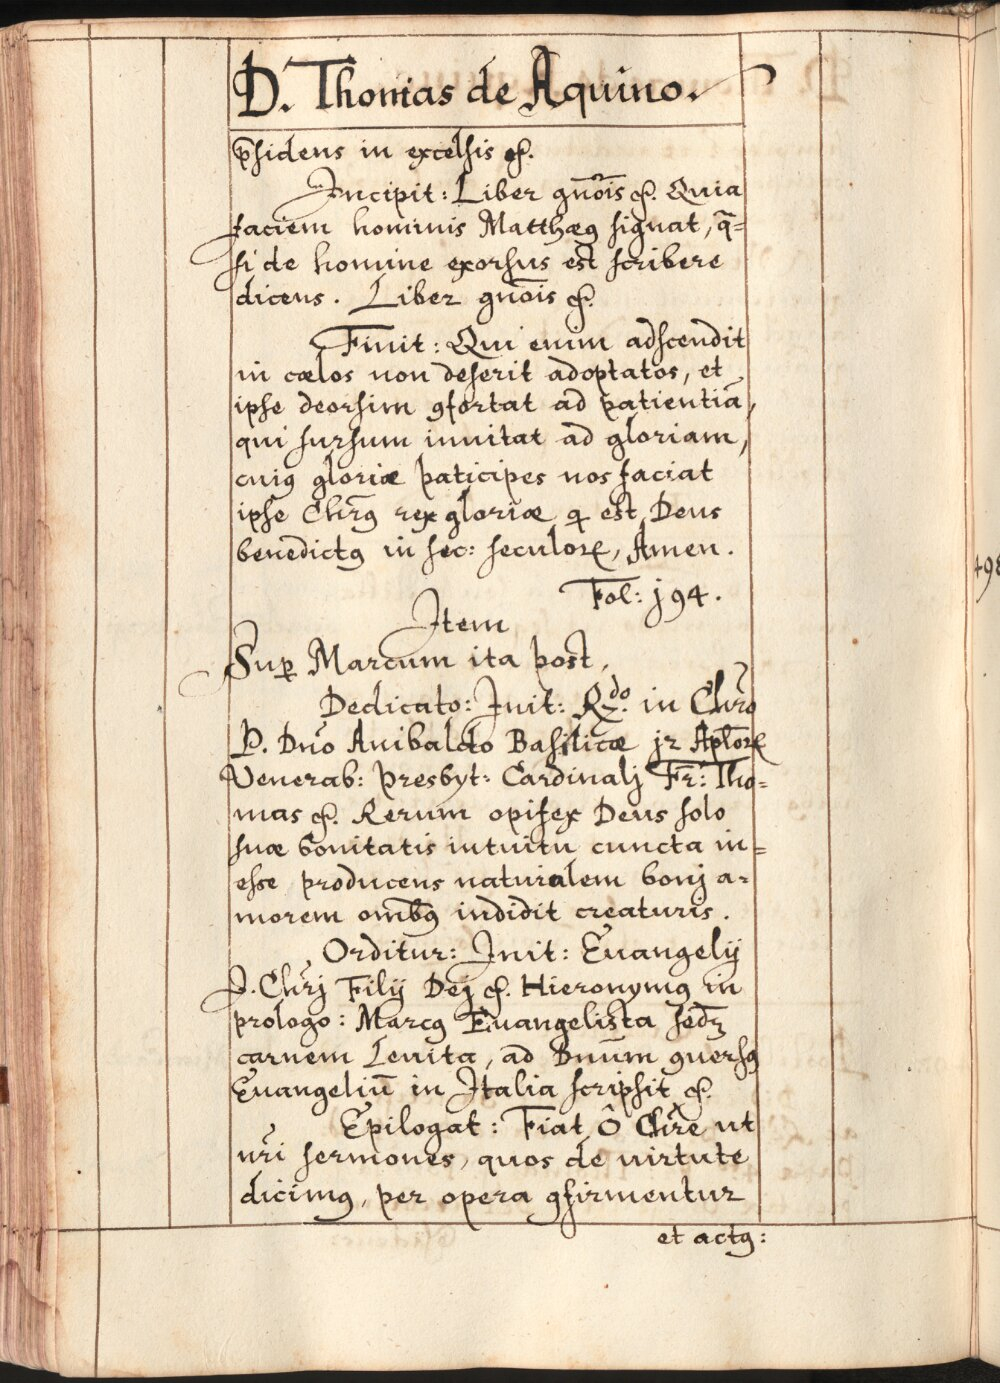 D. Thomas de Aquino.
p̄sidens in excelsis &c.
Incipit: Liber gn̄ōis &c. Quia
faciem hominis Matthæꝰ signat, q̄=
si de homine exorsus est scribere
dicens. Liber gn̄ōis &c.
Finit: Qui enim adscendit
in cœlos non deserit adoptatos, et
ipse deorsim ꝯfortat ad patientiā,
qui sursum inuitat ad gloriam,
cuiꝰ gloriæ ꝑticipes nos faciat
ipse Chr̄ꝰ rex gloriæ q̄ est Deus
benedictꝰ in sec: seculorꝝ, Amen.
Fol: j94.
Item
Suꝑ Marcum ita post,
Dedicato: Init: R.do in Chr̄o
P. Dn̄o Anibaldo Basilicæ j2 Aplorꝝ
Venerab: presbyt: Cardinalj Fr: Tho=
mas &c. Rerum opifex Deus solo
suæ bonitatis intuitu cuncta in=
esse producens naturalem bonj a=
morem omībꝰ indidit creaturis.
Orditur: Init: Euangelij
J. Chr̄j Filij Dej &c. Hieronymꝰ in
prologo: Marcꝰ Euangelista sedꝫ
carnem Leuita, ad Dn̄um ꝯuersꝰ
Euangeliū in Italia scripsit &c.
Epilogat: Fiat Ô Chr̄e ut
nr̄i sermones, quos de uirtute
dicimꝰ, per opera ꝯfirmentur
et actꝰ:
498